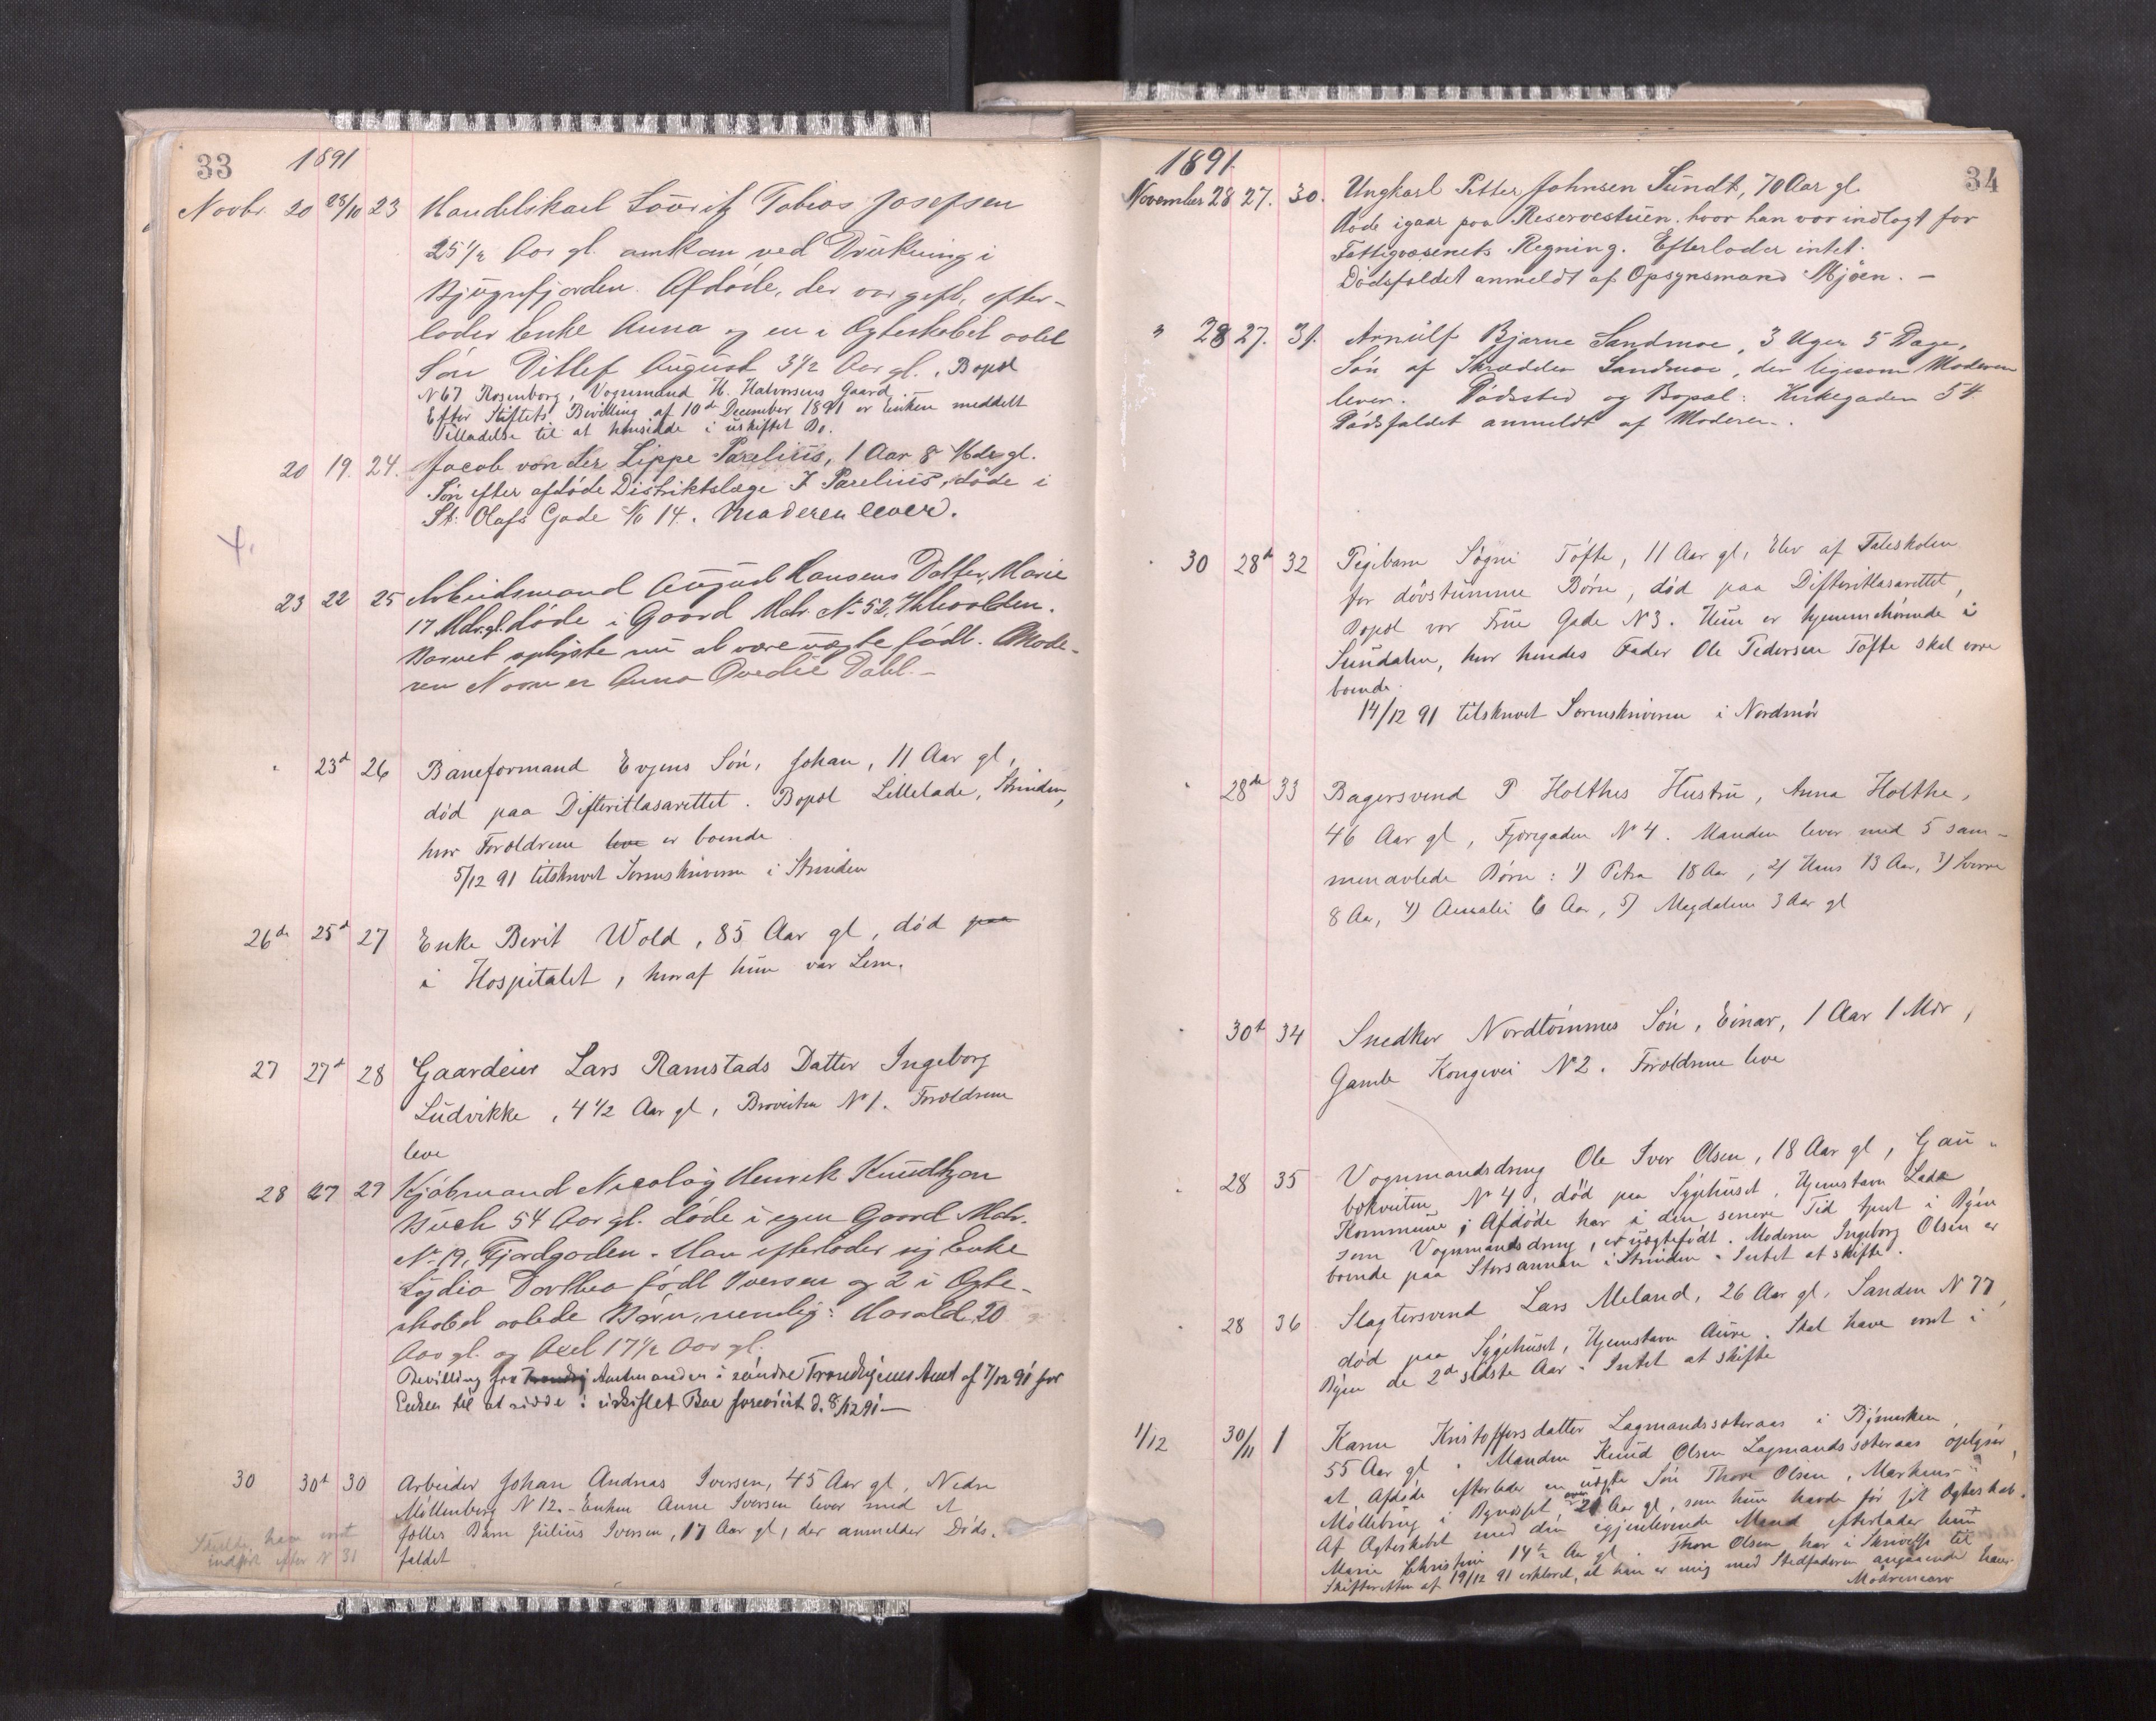 33 1891
Novbr. 20 28/10 23 Handelskarl Lauritz Tobias Josefsen
25 1/2 Aar gl. omkom ved Drukning i
Bjugnfjorden. Afdöde, der var gift, efter-
lader Enke Anna og en i Ægteskabet avlet
Sön Ditlef August 3 1/2 Aar gl. Bopæl
N 67 Rosenborg, Vognmand H. Halvorsens Gaard.
Efter Stiftets Bevilling af 10de December 1891 er Enken meddelt
Tilladelse til at hensidde i uskiftet Bo.
20 19. 24. Jacob von der Lippe Parelius, 1 Aar 8 Mdr gl.
Sön efter afdöde Distriktslæge J. Parelius, döde i
St: Olafs Gade No 14. Moderen lever.
23 22 25 Arbeidsmand August Hansens Datter, Marie
17 Mdr. gl. döde i Gaard Matr. No 52, Ihlevolden.
Barnet oplyste nu at være uægte födt. Mode-
ren Navn er Anna Ovedie Dahl. -
" 23d 26 Baneformand Evjens Sön, Johan, 11 Aar gl,
död paa Difteritlasarettet. Bopæl Lillelade, Strinden,
hvor Forældrene leve er boende
5/12 91 tilskrevet Sorenskriveren i Strinden
26de 25d 27 Enke Berit Wold, 85 Aar gl, död paa
i Hospitalet, hvoraf hun var Lem.
27 27d 28 Gaardeier Lars Ramstads Datter Ingeborg
Ludvikke, 4 1/2 Aar gl, Broveiten No 1. Forældrene
leve
28 27 29 Kjöbmand Nicolay Henrik Knudtzon
Buch 54 Aar gl. döde i egen Gaard Matr.
No 19, Fjordgaden. Han efterlader sig Enke
Lydia Dorthea födt Iversen og 2 i Ægte-
skabet avlede Börn, nemlig: Harald 20
Aar gl. og Axel 17 1/2 Aar gl.
Bevilling fra Trondhj Amtmanden i söndre Trondhjems Amt af 7/12 91 for
Enken til at sidde i uskiftet Boe forevist d. 8/12 91 -
30 30d 30 Arbeider Johan Andreas Iversen, 45 Aar gl, Nedre
Möllenberg N 12. - Enken Anne Iversen lever med et
fælles Barn Julius Iversen, 17 Aar gl, der anmelder Döds-
faldet
Skulde have været
indfört efter N 31
1891. 34
November 28 27. 30. Ungkarl Petter Johnsen Sundt, 70 Aar gl.
döde igaar paa Reservestuen, hvor han var indlagt for
Fattigvæsenets Regning. Efterlader intet.
Dödsfaldet anmeldt af Opsynsmand Mjöen. -
" 28 27. 31. Arnulf Bjarne Sandmoe, 3 Uger 5 Dage,
Sön af Skrædder Sandmoe, der ligesom Moderen
lever. Dödssted og Bopæl: Kirkegaden 54
Dödsfaldet anmeldt af Moderen.
30 28d 32 Pigebarn Sögni Töfte, 11 Aar gl, Elev af Taleskolen
for dövstumme Börn, död paa Difteritlasarettet,
Bopæl var Frue Gade N 3. Hun er hjemmehörende i
Sundalen, hvor hendes Fader Ole Pedersen Töfte skal være
boende.
14/12 91 tilskrevet Sorenskriveren i Nordmör
" 28de 33 Bagersvend P Holthes Hustru, Anna Holthe,
46 Aar gl, Fjæregaden No 4. Manden lever med 5 sam-
menavlede Börn: 1) Petra 18 Aar, 2) Hans 13 Aar, 3) Sverre
8 Aar, 4) Amalie 6 Aar, 5) Magdalene 3 Aar gl
" 30d 34 Snedker Nordtömmes Sön, Einar, 1 Aar 1 Mdr,
Gamle Kongevei No 2. Forældrene leve
" 28 35 Vognmandsdreng Ole Iver Olsen, 18 Aar gl, Gau-
bækveiten No 4, död paa Sygehuset, Hjemstavn Lade
Kommune; Afdöde har i den senere Tid tjent i Byen
som Vognmandsdreng, er uægtefödt. Moderen Ingeborg Olsen er
boende paa Storsannan i Strinden. Intet at skifte.
" 28 36 Slagtersvend Lars Meland, 26 Aar gl, Sanden N 77,
död paa Sygehuset, Hjemstavn Aure. Skal have været i
Byen de 2de sidste Aar. Intet at skifte
1/12 30/11 1 Karen Kristoffersdatter Lagmandssæteraas i Bymarken,
55 Aar gl. Manden Knud Olsen Lagmandssæteraas oplyser,
at Afdöde efterlader en uægte Sön Thore Olsen, Markens-
Mölleberg i Bynesset over 21 Aar gl, som hun havde för sit Ægteskab.
Af Ægteskabet med den igjenlevende Mand efterlader hun
Marie Christine 14 1/2 Aar gl. Thore Olsen har i Skrivelse til
Skifteretten af 19/12 91 erklæret, at han er enig med Stedfaderen angaaende hans
Mödrenearv